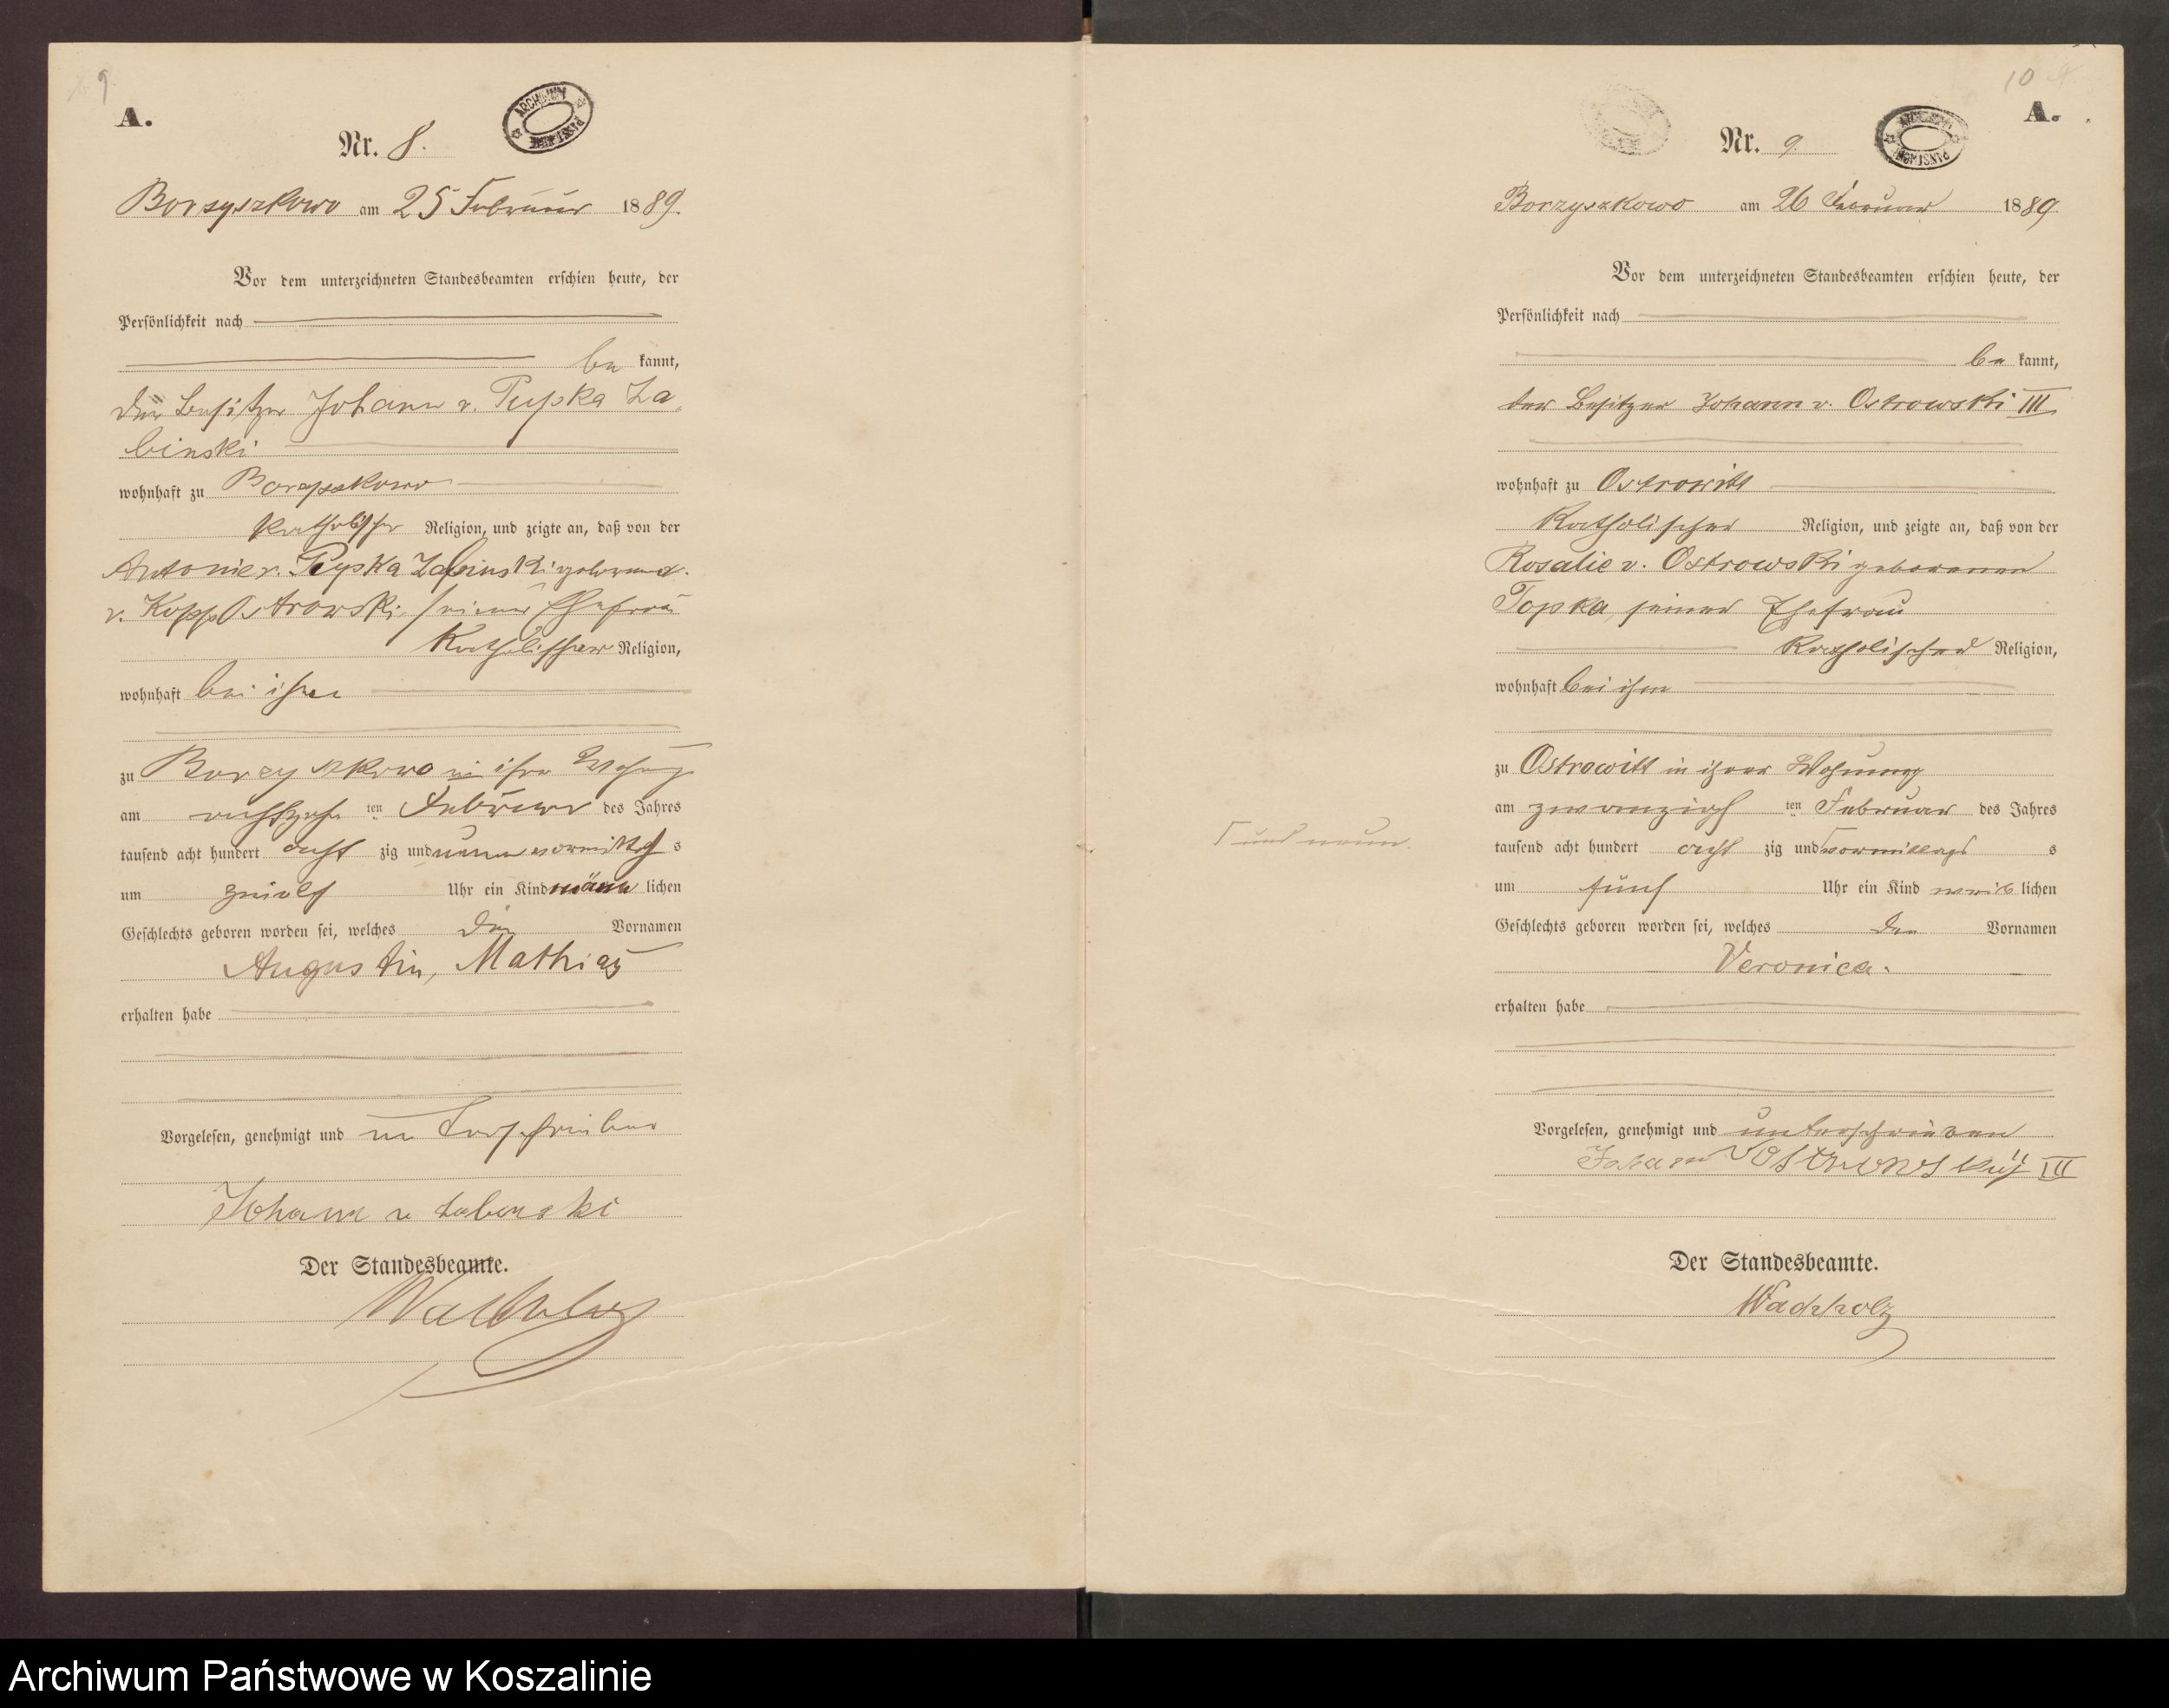 9.
A.
Nr. 8.
ARCHIWUM PAŃSTWOWE
Borzyszkowo am 25 Februar 1889.
Vor dem unterzeichneten Standesbeamten erschien heute, der
Persönlichkeit nach
be kannt,
der Besitzer Johann v. Pupka La
binski
wohnhaft zu Borzyszkowo
katholischer Religion, und zeigte an, daß von der
Antonie v. Pupka Labinski geborene
v. Kopp Ostrowski, seiner Ehefrau
Katholischer Religion,
wohnhaft bei ihm
zu Borzyszkowo in ihrer Wohnung
am achtzehn ten Februar des Jahres
tausend acht hundert acht zig und neun vormittag s
um zwölf Uhr ein Kind männ lichen
Geschlechts geboren worden sei, welches die Vornamen
Augustin, Mathias
erhalten habe
Vorgelesen, genehmigt und unterschrieben
Johann v Labenski
Der Standesbeamte.
Wachholz
10
A.
Nr. 9.
ARCHIWUM PAŃSTWOWE
Borzyszkowo am 26 Februar 1889
Vor dem unterzeichneten Standesbeamten erschien heute, der
Persönlichkeit nach
be kannt,
der Besitzer Johann v. Ostrowski III
wohnhaft zu Ostrowitt
Katholischer Religion, und zeigte an, daß von der
Rosalie v. Ostrowski geborenen
Topka, seiner Ehefrau
Katholischer Religion,
wohnhaft bei ihm
zu Ostrowitt in ihrer Wohnung
am zwanzigs ten Februar des Jahres
Γ und neun.
tausend acht hundert acht zig und Γ vormittags s
um fünf Uhr ein Kind weib lichen
Geschlechts geboren worden sei, welches den Vornamen
Veronica.
erhalten habe
Vorgelesen, genehmigt und unterschrieben
Johann v Ostrowski III
Der Standesbeamte.
Wachholz
Archiwum Państwowe w Koszalinie